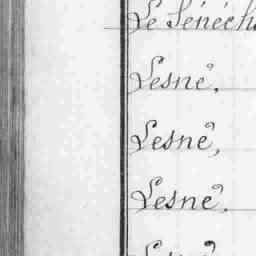 Le Sénéch
Lesné,
Lesné,
Lesné,